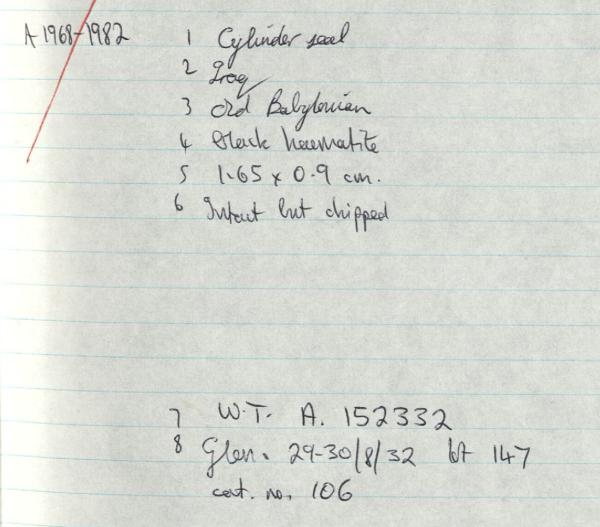 A 1968-1982 1 Cylinder seal
2 Iraq
3 Old Babylonian
4 Black haematite
5 1.65 x 0.9 cm.
6 Intact but chipped
7 W.T. A. 152332
8 Glen. 29-30/8/32 lot 147
cat. no. 106